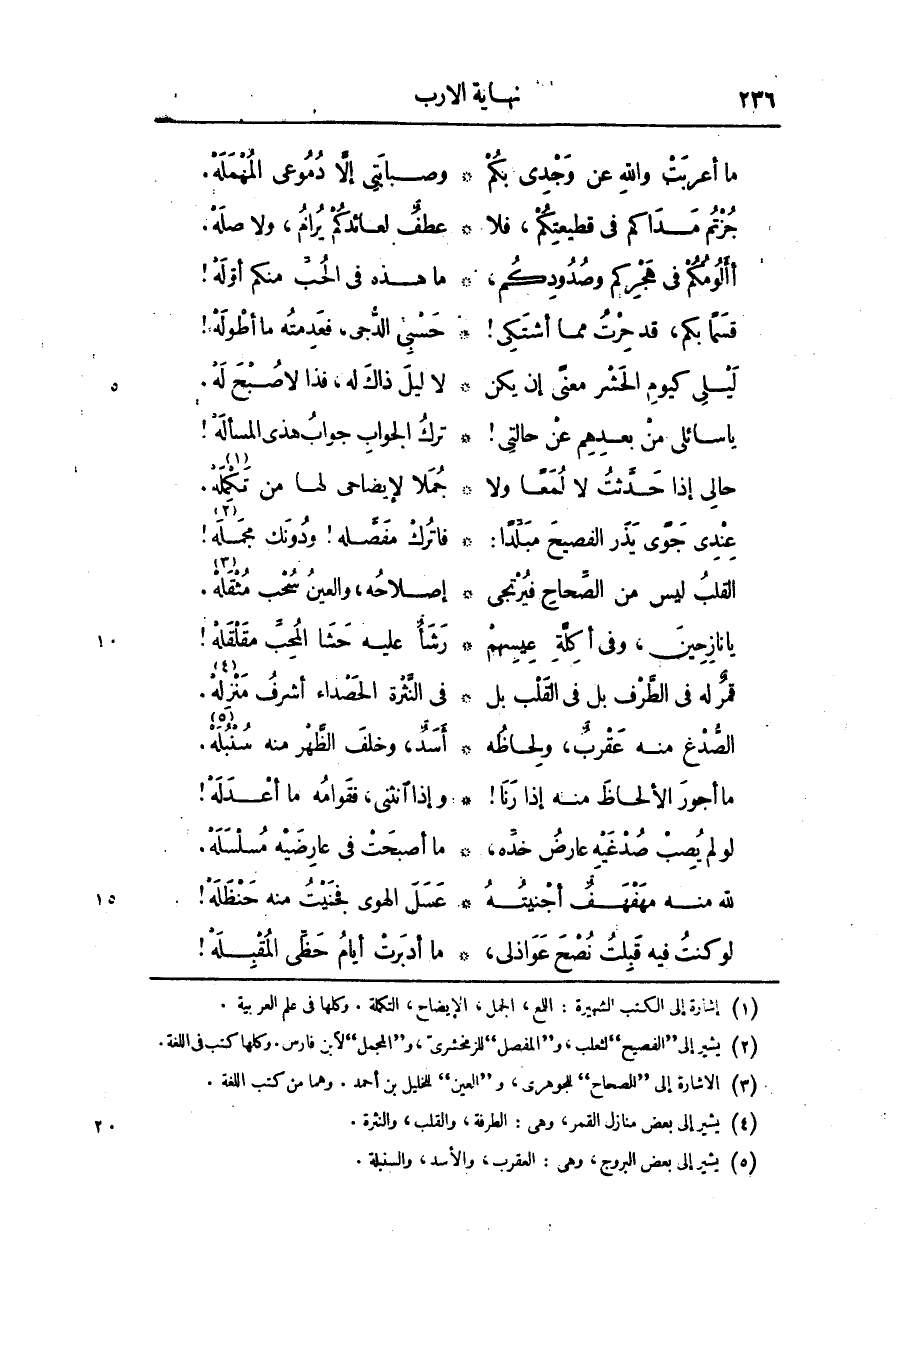 ٢٣٦ نهاية الارب
ما أعربَتْ واللهِ عن وَجْدِى بكُمْ * وصبابَتِى إلَّا دُمُوعى المُهْمَلَهْ.
جُزْتُم مَدَاكم فى قطيعتِكُمْ، فلا * عطفٌ لعائدكُمْ يُرامُ، ولا صلَهْ.
أألُومُكُمْ فى هَجْرِكم وصُدُودِكُم، * ما هذه فى الحُبِّ منكم أوّلَهْ!
قسَمًا بكم، قد حِرْتُ مما أشتَكِى! * حَسْبِى الدُّجى. فعَدِمتُه ما أطْولَهْ!
لَيْلِى كيومِ الحَشْر معنًى إن يكن * لا ليلَ ذاكَ له، فذا لا صُبْحَ لَهْ. ٥
ياسائلى منْ بعدِهِم عنْ حالتِى! * تركُ الجوابِ جوابُ هذى المسألَهْ!
حالى إذا حَدَّثتُ لا لُمَعًا ولا * جُمَلا لإيضاحى لها من تَكْمِلَهْ(١).
عِنْدِى جَوًى يَذَر الفصيحَ مبَلَّدًا: * فاتْركْ مفَصَّله! ودُونَك مجمَلَهْ(٢)!
القلبُ ليس من الصَّحاحِ فيُرْتجى * إصلاحُه، والعينُ سُحْب مُثْقَلَهْ(٣).
يانازحِينَ، وفى أكِلَّةِ عِيسِهِمْ * رَشَأٌ عليه حَشَا المُحِبِّ مقَلْقَلَهْ! ١٠
قمرٌ له فى الطَّرْف بل فى القَلْب بل * فى النَّثْرة الحَصْداء أشرفُ مَنْزِلَهْ(٤).
الصُّدْغ منه عَقْربٌ، ولحاظُه * أَسَدٌ، وخلفَ الظَّهْر منه سُنْبُلَهْ(٥).
ما أجورَ الألحاظَ منه إذا رَنَا! * وإذا آنثنى، فقَوامُه ما أعْدَلَهْ!
لو لم يُصِبْ صُدْغَيْهِ عارضُ خدِّه، * ما أصبحَتْ فى عارِضَيْه مُسلْسَلَهْ.
لله منه مهَفْهَفٌ أجْنيتُهُ * عَسَلَ الهوى فجَنَيْتُ منه حَنْظَلَهْ! ١٥
لو كنتُ فيه قَبِلتُ نُصْحَ عَوَاذلى، * ما أدبَرتْ أيامُ حَظِّى المُقْبِلَهْ!
(١) إشارة إلى الكتب الشهيرة : اللمع، الجمل، الإيضاح، التكملة . وكلها فى علم العربية .
(٢) يشير إلى “الفصيح” لثعلب، و“المفصل” للزمخشرىّ، و“المجمل” لآبن فارس. وكلها كتب فى اللغة .
(٣) الاشارة إلى “للصحاح” للجوهرى، و “العين” للخليل بن أحمد . وهما من كتب اللغة .
(٤) يشير إلى بعض منازل القمر، وهى : الطرفة، والقلب، والنثرة . ٢٠
(٥) يشير إلى بعض البروج، وهى : العقرب، والأسد، والسنبلة .